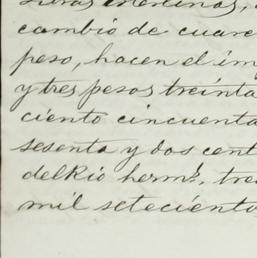 Libras esterlinas,
cambio de cuare
peso, hacen el im
y tres pesos treinta
ciento cincuenta
sesenta y dos cent
del Rio herms. tre
mil seteciento